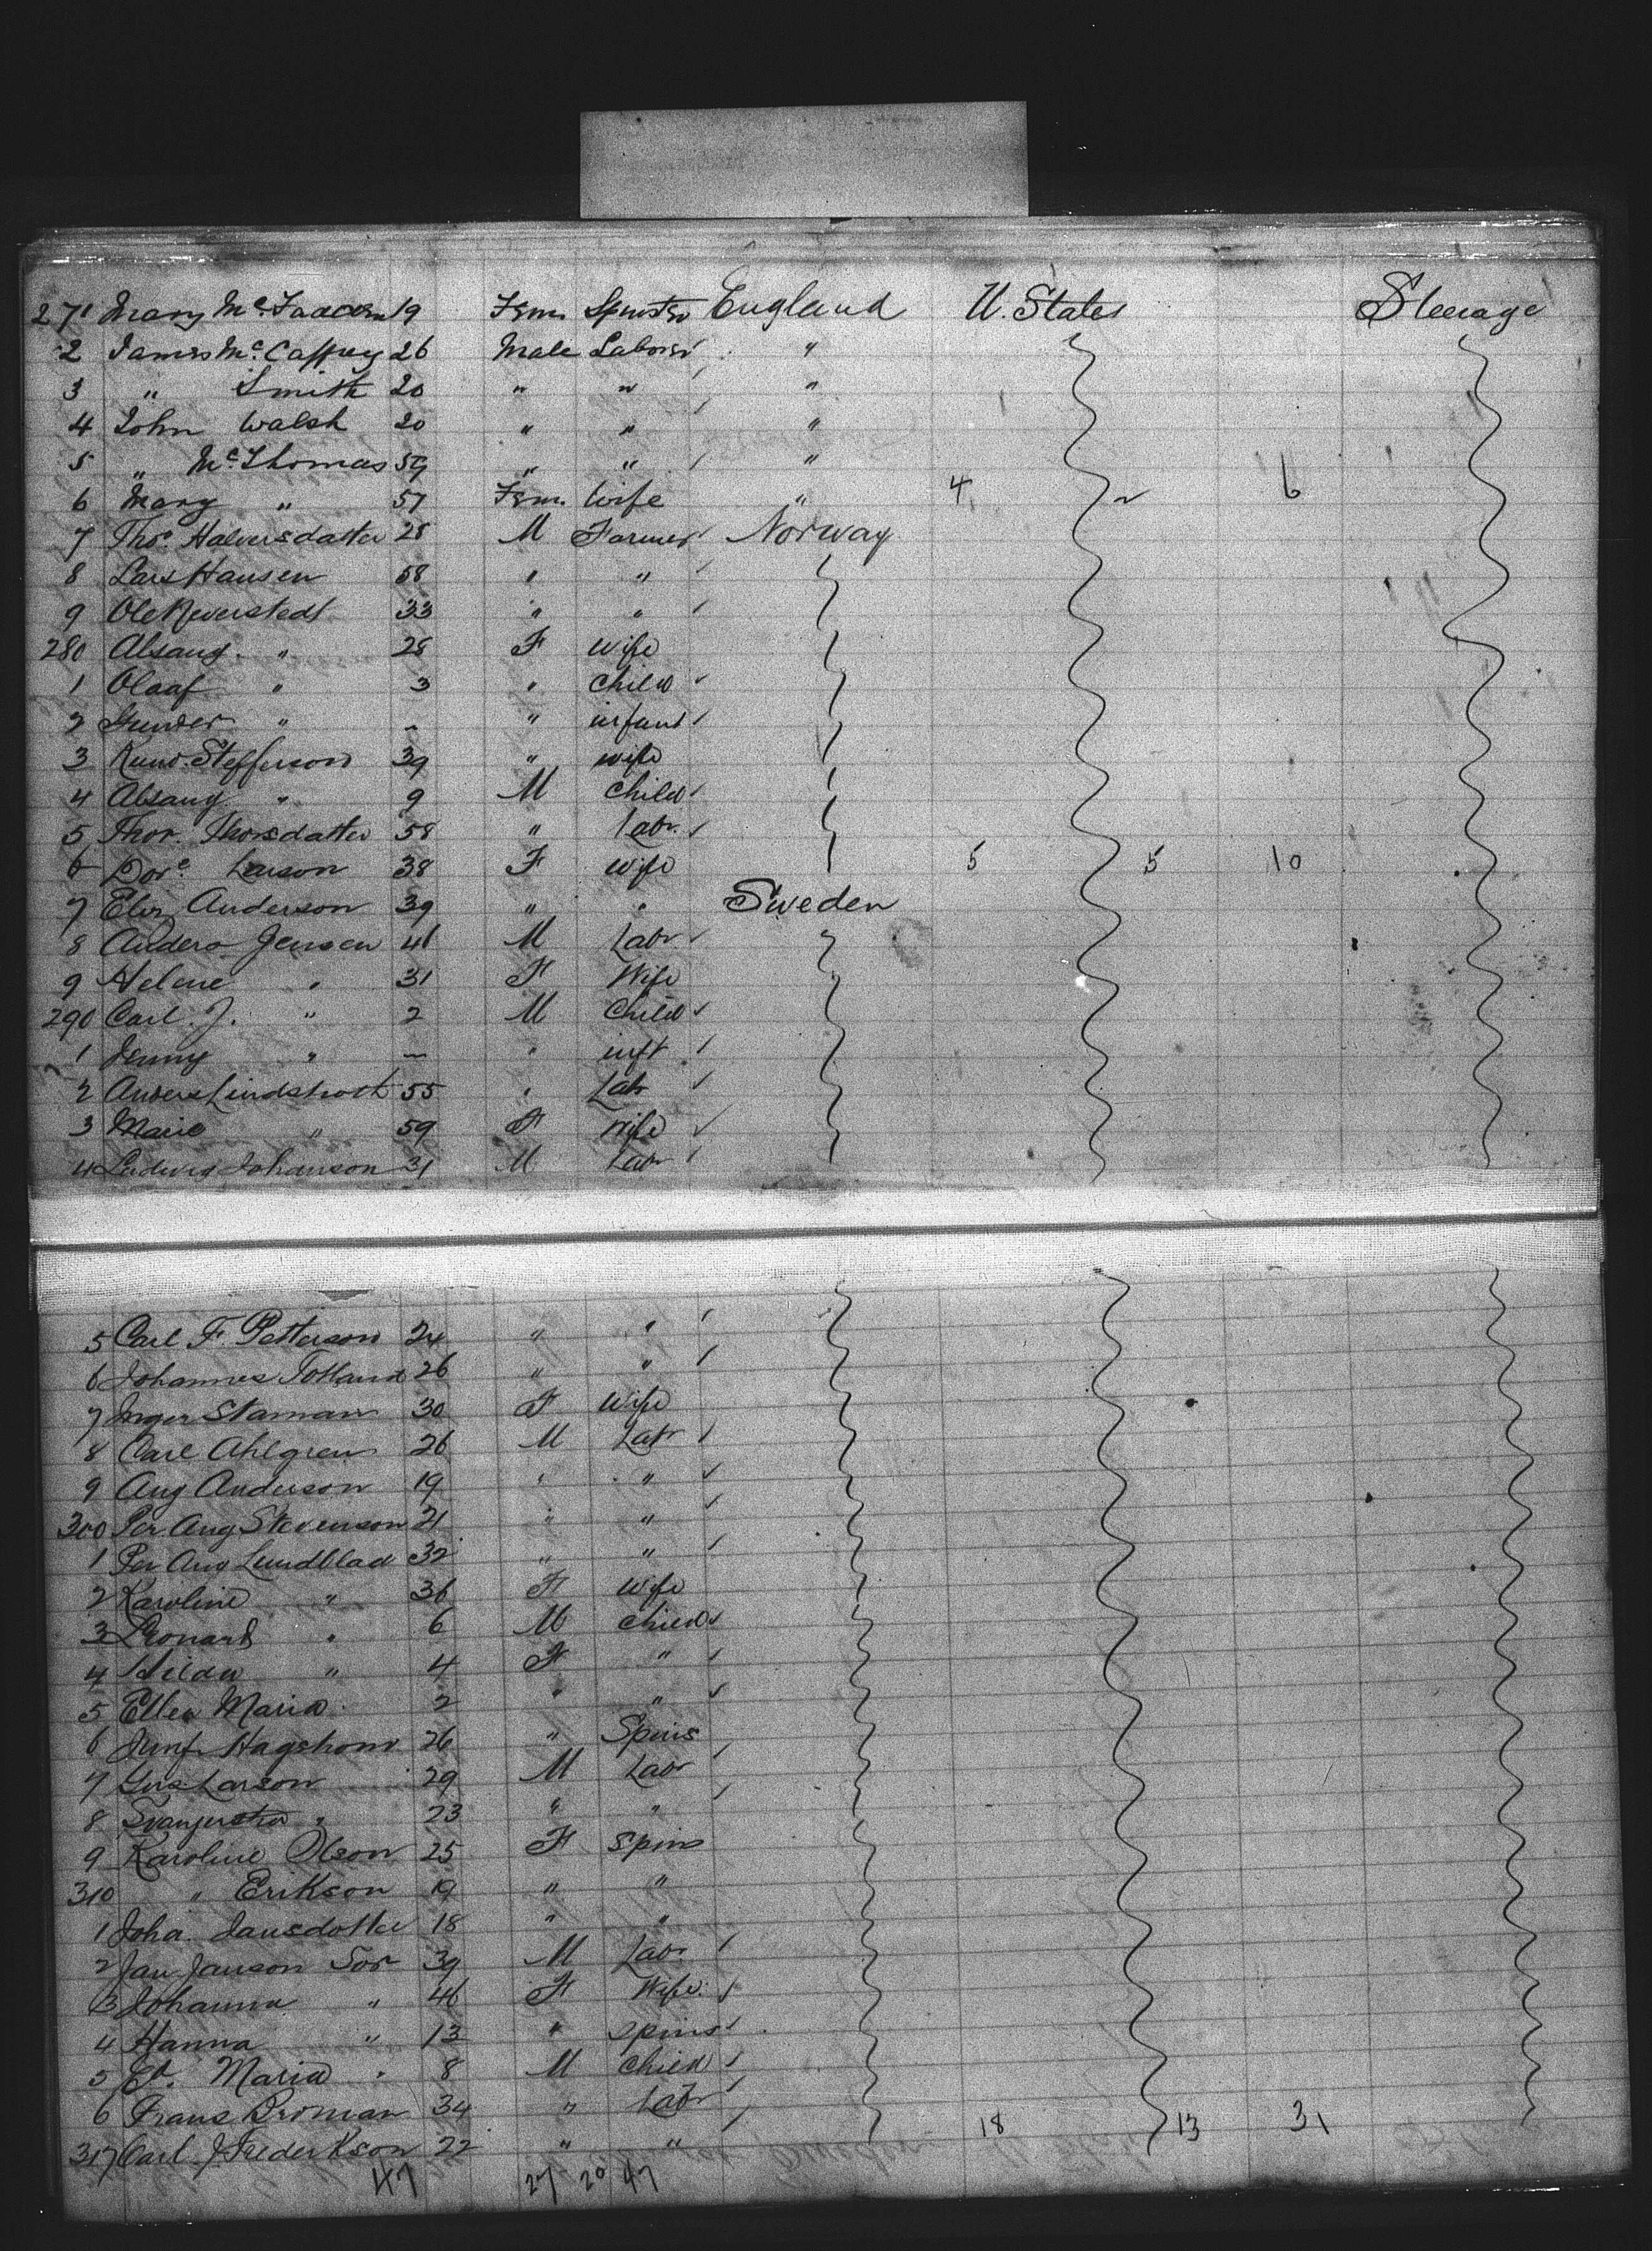 271 Mary McFadden 19 Fem. Spinster England U. States Steerage
2 James McCaffrey 26 Male Laborer "
3 " Smith 20 " " "
4 John Walsh 20 " " "
5 " McThomas 59 " " "
6 Mary " 57 Fem. Wife " 4 2 6
7 Thos. Halversdatter 28 M Farmer Norway
8 Lars Hansen 58 " "
9 Ole Neverstedt 33 " "
280 Absaug " 28 F Wife
1 Olaaf " 3 " Child
2 Gunder " - " infant
3 Knud Stefferson 39 " wife
4 Absaug " 9 M Child
5 Thor. Thorsdatter 58 " Labr.
6 Dor. Larson 38 F Wife 5 5 10
7 Anderson 39 " " Sweden
8 Anders Jensen 41 M Labr
9 Helene " 31 F Wife
290 Carl. J. " 2 M Child
1 Jenny " - " inft
2 Anders 55 " Labr
3 Marie " 59 F Wife
4 Ludwig Johanson 31 M Labr
5 Carl F. Petterson 24 " "
6 Johannes Totland 26 " "
7 Inger Staman 30 F Wife
8 Carl Ahlgren 26 M Labr
9 Aug Anderson 19 " "
300 Per Aug Stevenson 21 " "
1 Per Aug Lundblad 32 " "
2 Karoline " 36 F Wife
3 Leonard " 6 M Child
4 Hilda " 4 F "
5 Ellen Maria 2 " "
6 26 " Spins
7 Gus Larson 29 M Labr
8 " 23 " "
9 Karoline Olson 25 F Spins
310 " Erikson 19 " "
1 Joha. Jansdotter 18 " "
2 Jan Janson Sor 39 M Labr
3 Johanna " 46 F Wife
4 Hanna " 13 " Spins
5 Maria " 8 M Child
6 Frans Broman 34 " Labr
317 Carl J Frederkson 22 " " 18 13 31
47 27 20 47